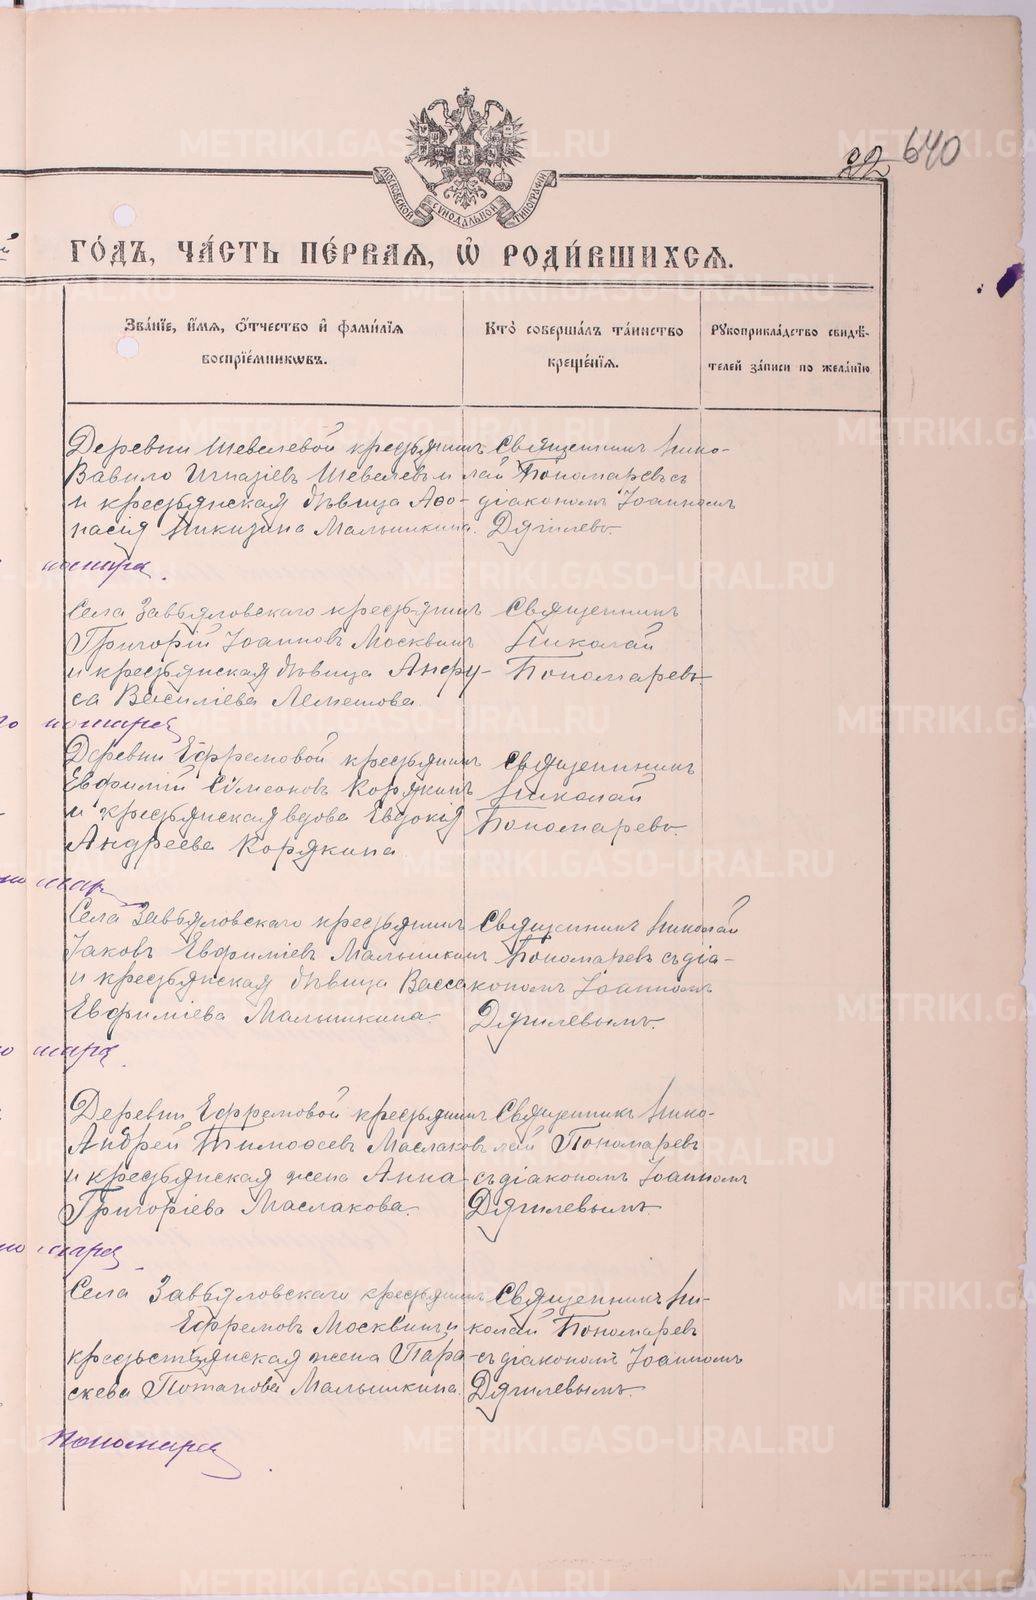 22 640
МОСКОВСКОЙ СѴНОДАЛЬНОЙ ТИПОГРАФІИ
ГО́ДЪ, ЧА́СТЬ ПЕ́РВАЯ, Ѽ РОДИ́ВШИХСЯ.
Зва́нїе, и́мя, ѻ́тчество и҆ фами́лїя
воспрїе́мникѡвъ.
Кто̀ соверша́лъ та́инство
креще́нїя.
Рукоприкла́дство свидѣ́-
телей за́писи по жела́нїю
Деревни Шевелевой крестьянинъ
Вавило Игнатіевъ Шевелевъ и
и крестьянская дѣвица Аѳо-
насія Никитина Малышкина.
Священникъ Нико-
лай Пономаревъ съ
діакономъ Іоанномъ
Дягилевъ.
Села Завьяловскаго крестьянинъ
Григорій Іоанновъ Москвинъ
и крестьянская дѣвица Анфу-
са Василіева Лемешова.
Священникъ
Николай
Пономаревъ.
Деревни Ефремовой крестьянинъ
Евфимій Сѵмеоновъ Корякинъ
и крестьянская вдова Евдокія
Андреева Корякина.
Священникъ
Николай
Пономаревъ.
Села Завьяловскаго крестьянинъ
Іаковъ Евфиміевъ Малышкинъ
и крестьянская дѣвица Васса
Евфиміева Малышкина.
Священникъ Николай
Пономаревъ съ діа-
кономъ Іоанномъ
Дягилевымъ.
Деревни Ефремовой крестьянинъ
Андрей Тимоѳеевъ Маслаковъ
и крестьянская жена Анна
Григоріева Маслакова.
Священникъ Нико-
лай Пономаревъ
съ діакономъ Іоанномъ
Дягилевымъ.
Села Завьяловскаго крестьянинъ
Ефремовъ Москвинъ и
крестьстьянская жена Пара-
скева Потапова Малышкина.
Священникъ Ни-
колай Пономаревъ
съ діакономъ Іоанномъ
Дягилевымъ.
Пономарев
METRIKI.GASO-URAL.RU